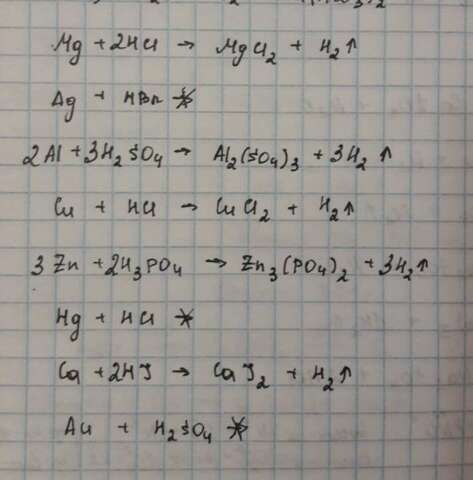 Mg + 2HCl → MgCl₂ + H₂↑
Ag + HBr ↛
2Al + 3H₂SO₄ → Al₂(SO₄)₃ + 3H₂↑
Cu + HCl → CuCl₂ + H₂↑
3Zn + 2H₃PO₄ → Zn₃(PO₄)₂ + 3H₂↑
Hg + HCl ↛
Ca + 2HJ → CaJ₂ + H₂↑
Au + H₂SO₄ ↛